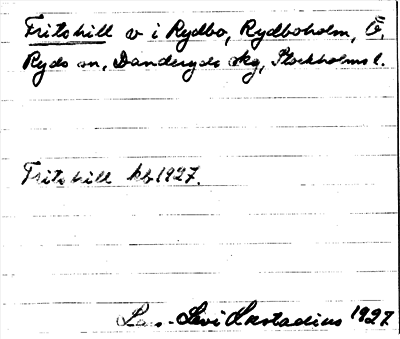 Fritshill v i Rydbo, Rydboholm, Ö.
Ryds sn, Danderyds skg, Stockholms l.
Fritshill kb 1927.
Lars-Levi Læstadius 1927